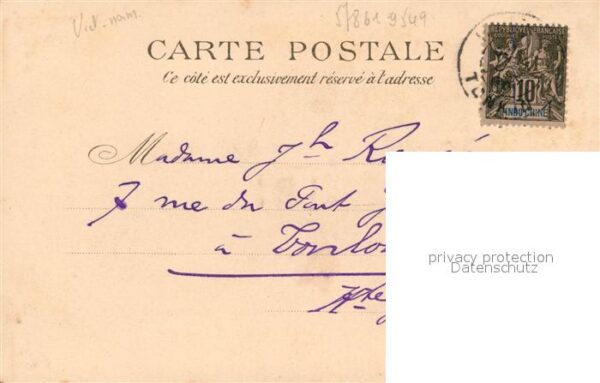 Viet-nam.
578619549
CARTE POSTALE
Ce côté est exclusivement réservé à l'adresse
RÉPUBLIQUE FRANÇAISE
10
INDO-CHINE
TONK
Madame Jh
7 rue du
à Toulou
Hte
privacy protection
Datenschutz